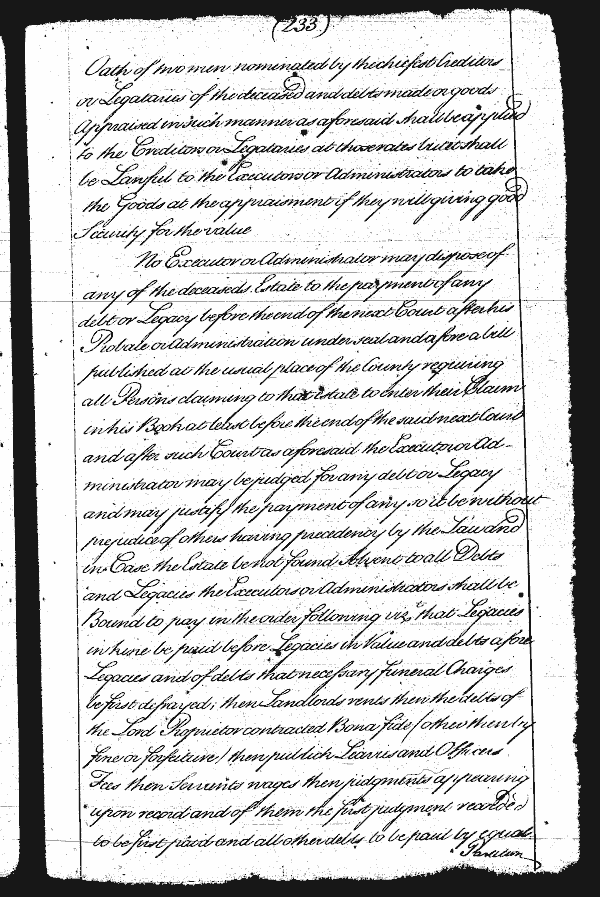 (233)
Oath of two men nominated by the chiefest Creditors
or Legataries of the deceased and debts made or goods
Appraised in such manner as aforesaid shall be applied
to the Creditors or Legataries at those rates but it shall
be Lawful to the Executors or Administrators to take
the Goods at the appraisment if they will giving good
Security for the value
No Executor or Administrator may dispose of
any of the deceaseds Estate to the payment of any
debt or Legacy before the end of the next Court after his
Probate or Administration under seal and afore a bill
published at the usual place of the County requiring
all Persons claiming to that estate to enter their Claim
in his Book at least before the end of the said next Court
and after such Court as aforesaid the Executor or Ad-
ministrator may be judged for any debt or Legacy
and may justify the payment of any so it be without
prejudice of others having precedency by the Law and
in Case the Estate be not found Solvent to all Debts
and Legacies the Executors or Administrators shall be
Bound to pay in the order following viz.t that Legacies
in kine be paid before Legacies in Value and debts afore
Legacies and of debts that necessary funeral Charges
be first defrayed; then Landlords rents then the debts of
the Lord Proprietor contracted Bona fide (other then by
fine or forfeiture) then publick Learies and Officers
Fees then Servants wages then judgments appearing
upon record and of them the first judgment recorded
to be first paid and all other debts to be paid by equal